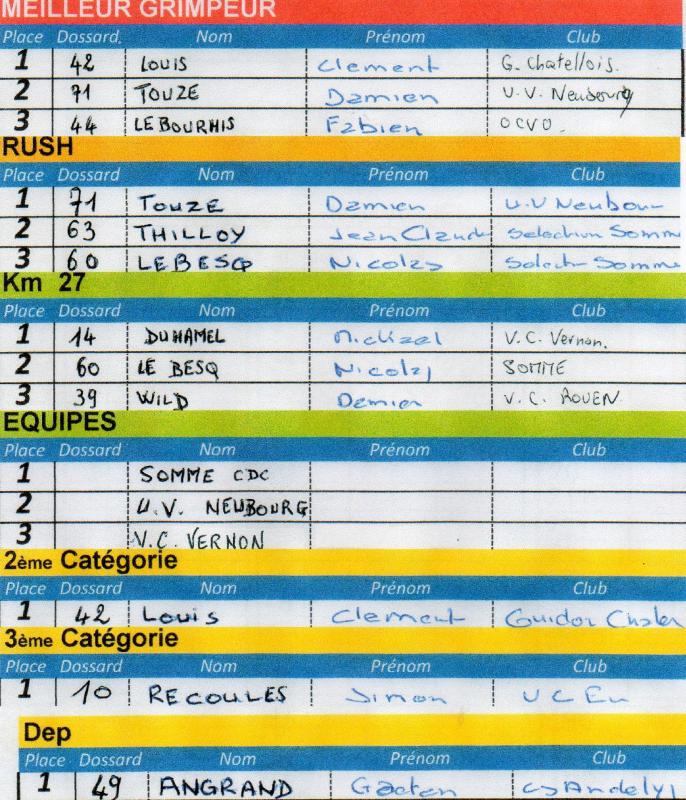 MEILLEUR GRIMPEUR
Place Dossard. Nom Prénom Club
1 42 LOUIS Clement G. Chatellois.
2 71 TOUZE Damien U.V. Neubourg
3 44 LE BOURHIS Fabien OCVO.
RUSH
Place Dossard Nom Prénom Club
1 71 TOUZE Damien U.V Neubou
2 63 THILLOY Jean Claud Selection Somm
3 60 LE BESQ Nicolas Somme
Km 27
Place Dossard Nom Prénom Club
1 14 DUHAMEL Mickael V.C. Vernon.
2 60 LE BESQ Nicolas SOMME
3 39 WILD Damien V.C. ROUEN.
EQUIPES
Place Dossard Nom Prénom Club
1 SOMME CDC
2 U.V. NEUBOURG
3 V.C. VERNON
2ème Catégorie
Place Dossard Nom Prénom Club
1 42 Louis Clement Guidon
3ème Catégorie
Place Dossard Nom Prénom Club
1 10 RECOULES Simon
Dep
Place Dossard Nom Prénom Club
1 49 ANGRAND Gaetan CS Andelys